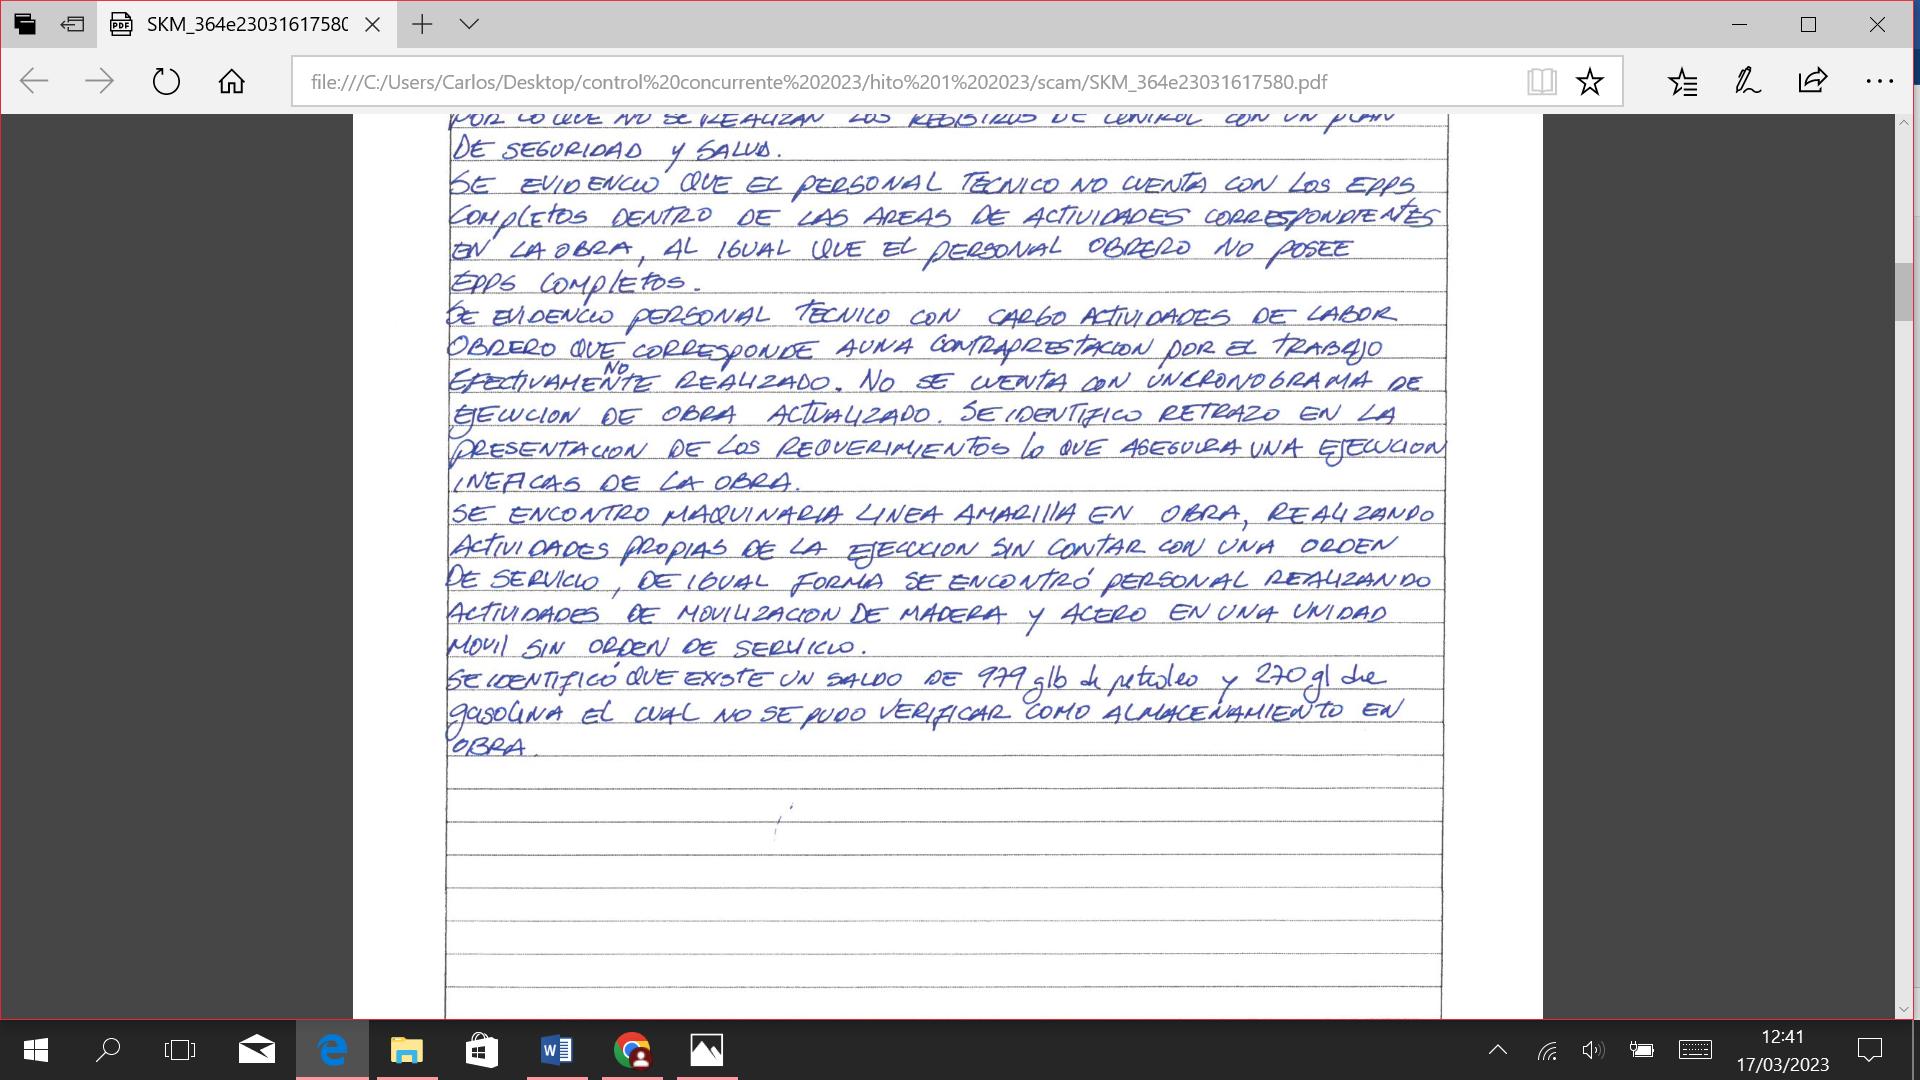 SKM_364e23031617580
file:///C:/Users/Carlos/Desktop/control%20concurrente%202023/hito%201%202023/scam/SKM_364e23031617580.pdf
POR LO QUE NO SE REALIZAN LOS REGISTROS DE CONTROL CON UN PLAN
DE SEGURIDAD Y SALUD.
SE EVIDENCIO QUE EL PERSONAL TECNICO NO CUENTA CON LOS EPPS
COMPLETOS DENTRO DE LAS AREAS DE ACTIVIDADES CORRESPONDIENTES
EN LA OBRA, AL IGUAL QUE EL PERSONAL OBRERO NO POSEE
EPPS COMPLETOS.
SE EVIDENCIO PERSONAL TECNICO CON CARGO ACTIVIDADES DE LABOR
OBRERO QUE CORRESPONDE AUNA CONTRAPRESTACION POR EL TRABAJO
NO
EFECTIVAMENTE REALIZADO. NO SE CUENTA CON UN CRONOGRAMA DE
EJECUCION DE OBRA ACTUALIZADO. SE IDENTIFICO RETRAZO EN LA
PRESENTACION DE LOS REQUERIMIENTOS LO QUE ASEGURA UNA EJECUCION
INEFICAS DE LA OBRA.
SE ENCONTRO MAQUINARIA LINEA AMARILLA EN OBRA, REALIZANDO
ACTIVIDADES PROPIAS DE LA EJECUCION SIN CONTAR CON UNA ORDEN
DE SERVICIO, DE IGUAL FORMA SE ENCONTRÓ PERSONAL REALIZANDO
ACTIVIDADES DE MOVILIZACION DE MADERA Y ACERO EN UNA UNIDAD
MOVIL SIN ORDEN DE SERVICIO.
SE IDENTIFICÓ QUE EXISTE UN SALDO DE 979 glb de petroleo y 270 gl de
gasolina EL CUAL NO SE PUDO VERIFICAR COMO ALMACENAMIENTO EN
OBRA.
12:41
17/03/2023